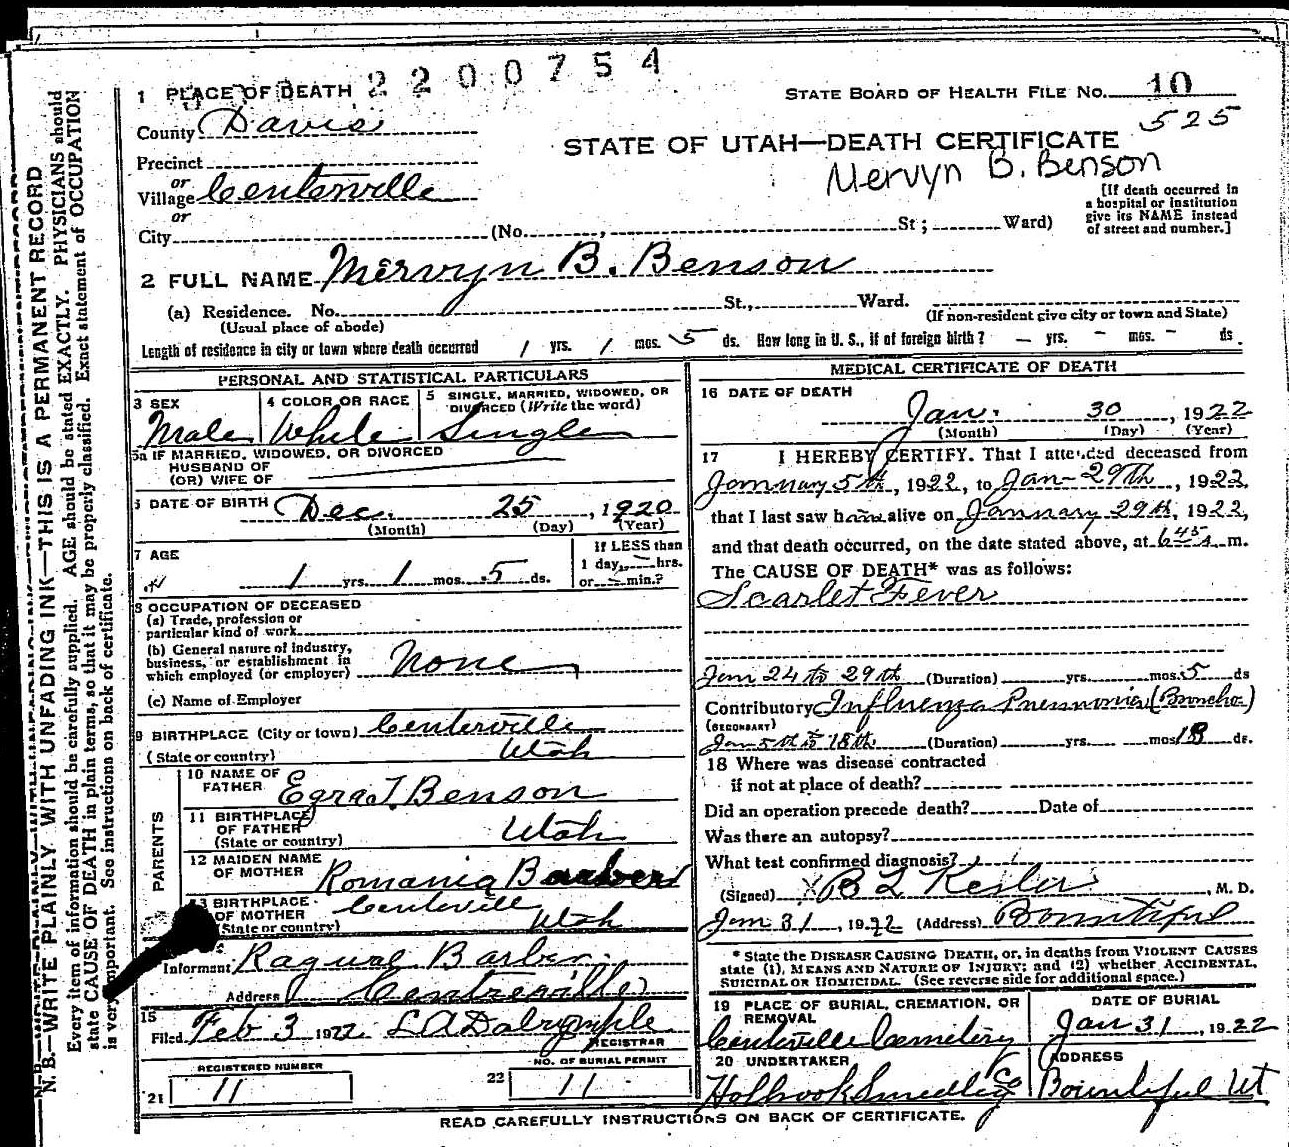 2200754
1 PLACE OF DEATH
STATE BOARD OF HEALTH FILE NO. 10
County Davis
525
STATE OF UTAH—DEATH CERTIFICATE
Precinct
Mervyn B. Benson
or
Village Centerville
or
City (No. , St; Ward)
[If death occurred in
a hospital or institution
give its NAME instead
of street and number.]
2 FULL NAME Mervyn B. Benson
(a) Residence. No. St., Ward.
(Usual place of abode)
(If non-resident give city or town and State)
Length of residence in city or town where death occurred 1 yrs. 1 mos. 5 ds. How long in U. S., if of foreign birth? — yrs. — mos. — ds.
PERSONAL AND STATISTICAL PARTICULARS
3 SEX
Male
4 COLOR OR RACE
White
5 SINGLE, MARRIED, WIDOWED, OR
DIVORCED (Write the word)
Single
5a IF MARRIED, WIDOWED, OR DIVORCED
HUSBAND OF
(OR) WIFE OF
6 DATE OF BIRTH Dec. 25, 1920
(Month) (Day) (Year)
7 AGE
1 yrs. 1 mos. 5 ds.
If LESS than
1 day, — hrs.
or — min.?
8 OCCUPATION OF DECEASED
(a) Trade, profession or
particular kind of work
(b) General nature of industry,
business, or establishment in
which employed (or employer) None
(c) Name of Employer
9 BIRTHPLACE (City or town) Centerville
(State or country) Utah
PARENTS
10 NAME OF
FATHER Ezra T. Benson
11 BIRTHPLACE
OF FATHER
(State or country) Utah
12 MAIDEN NAME
OF MOTHER Romania Barber
13 BIRTHPLACE
OF MOTHER Centerville
(State or country) Utah
Informant Raguel Barber
Address Centreville
15
Filed Feb 3 1922 L A Dalrymple
REGISTRAR
REGISTERED NUMBER
21 11
NO. OF BURIAL PERMIT
22 11
MEDICAL CERTIFICATE OF DEATH
16 DATE OF DEATH
Jan. 30, 1922
(Month) (Day) (Year)
17 I HEREBY CERTIFY. That I attended deceased from
January 5th, 1922, to Jan 29th, 1922,
that I last saw him alive on January 29th, 1922,
and that death occurred, on the date stated above, at 6 45 A m.
The CAUSE OF DEATH* was as follows:
Scarlet Fever
Jan 24 to 29th (Duration) yrs. mos. 5 ds
Contributory Influenza Pneumonia (Broncho)
(SECONDARY)
Jan 5th to 18th (Duration) yrs. mos. 13 ds.
18 Where was disease contracted
if not at place of death?
Did an operation precede death? Date of
Was there an autopsy?
What test confirmed diagnosis?
(Signed) B L Kesler, M. D.
Jan 31, 1922 (Address) Bountiful
* State the DISEASE CAUSING DEATH, or, in deaths from VIOLENT CAUSES
state (1), MEANS AND NATURE OF INJURY; and (2) whether ACCIDENTAL,
SUICIDAL OR HOMICIDAL. (See reverse side for additional space.)
19 PLACE OF BURIAL, CREMATION, OR
REMOVAL
Centerville Cemetery
DATE OF BURIAL
Jan 31, 1922
20 UNDERTAKER
Holbrook Smedley Co
ADDRESS
Bountiful Ut
READ CAREFULLY INSTRUCTIONS ON BACK OF CERTIFICATE.
N. B.—WRITE PLAINLY WITH UNFADING INK—THIS IS A PERMANENT RECORD
Every item of information should be carefully supplied. AGE should be stated EXACTLY. PHYSICIANS should
state CAUSE OF DEATH in plain terms, so that it may be properly classified. Exact statement of OCCUPATION
is very important. See instructions on back of certificate.